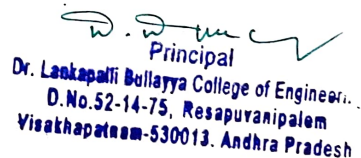 Principal
Dr. Lankapalli Bullayya College of Engineeri..
D.No.52-14-75, Resapuvanipalem
Visakhapatnam-530013. Andhra Pradesh